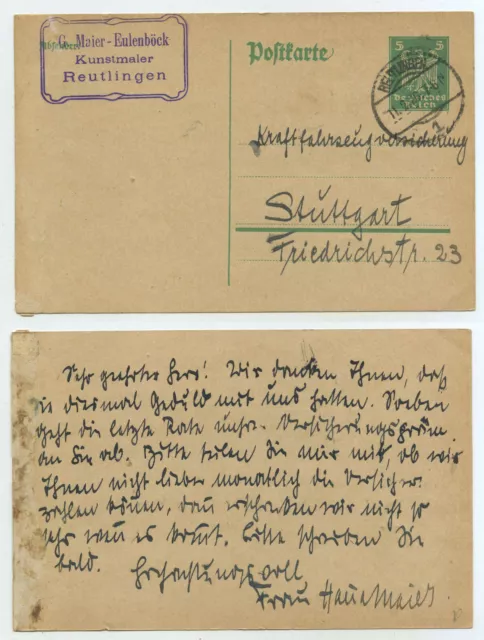 Absender:
G. Maier-Eulenböck
Kunstmaler
Reutlingen
Postkarte
5 5
Deutsches
Reich
REUTLINGEN
1
Kraftfahrzeugversicherung
Stuttgart
Friedrichstr. 23
Sehr geehrter Herr! Wir danken Ihnen, daß
sie diesmal Geduld mit uns hatten. Soeben
geht die letzte Rate unsr. Versicherungspräm.
an Sie ab. Bitte teilen Sie mir mit, ob wir
Ihnen nicht lieber monatlich die Versicher.
zahlen können, dan erschrecken wir nicht so
sehr wen es komt. Bitte schreiben Sie
bald. Hochachtungsvoll
Frau Maier